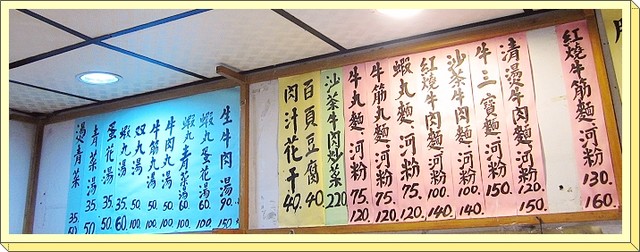 紅燒牛筋麵、河粉 130. 160.
清燙牛肉麵、河粉 120. 150.
牛三寶麵、河粉 150.
沙茶牛肉麵、河粉 100. 140.
紅燒牛肉麵、河粉 100. 140.
蝦丸麵、河粉 75. 120.
牛筋丸麵、河粉 75. 120.
牛丸麵、河粉 75. 120.
沙茶牛肉炒菜 220.
百頁豆腐 40.
肉汁花干 40.
生牛肉湯 90. 150.
蝦丸蛋花湯 60. 100.
蝦丸青菜湯 60. 100.
牛肉丸湯 50. 100.
牛筋丸湯 50. 100.
双丸湯 50. 100.
蝦丸湯 35. 60
蛋花湯 35. 50.
青菜湯 35. 50
燙青菜 35. 50